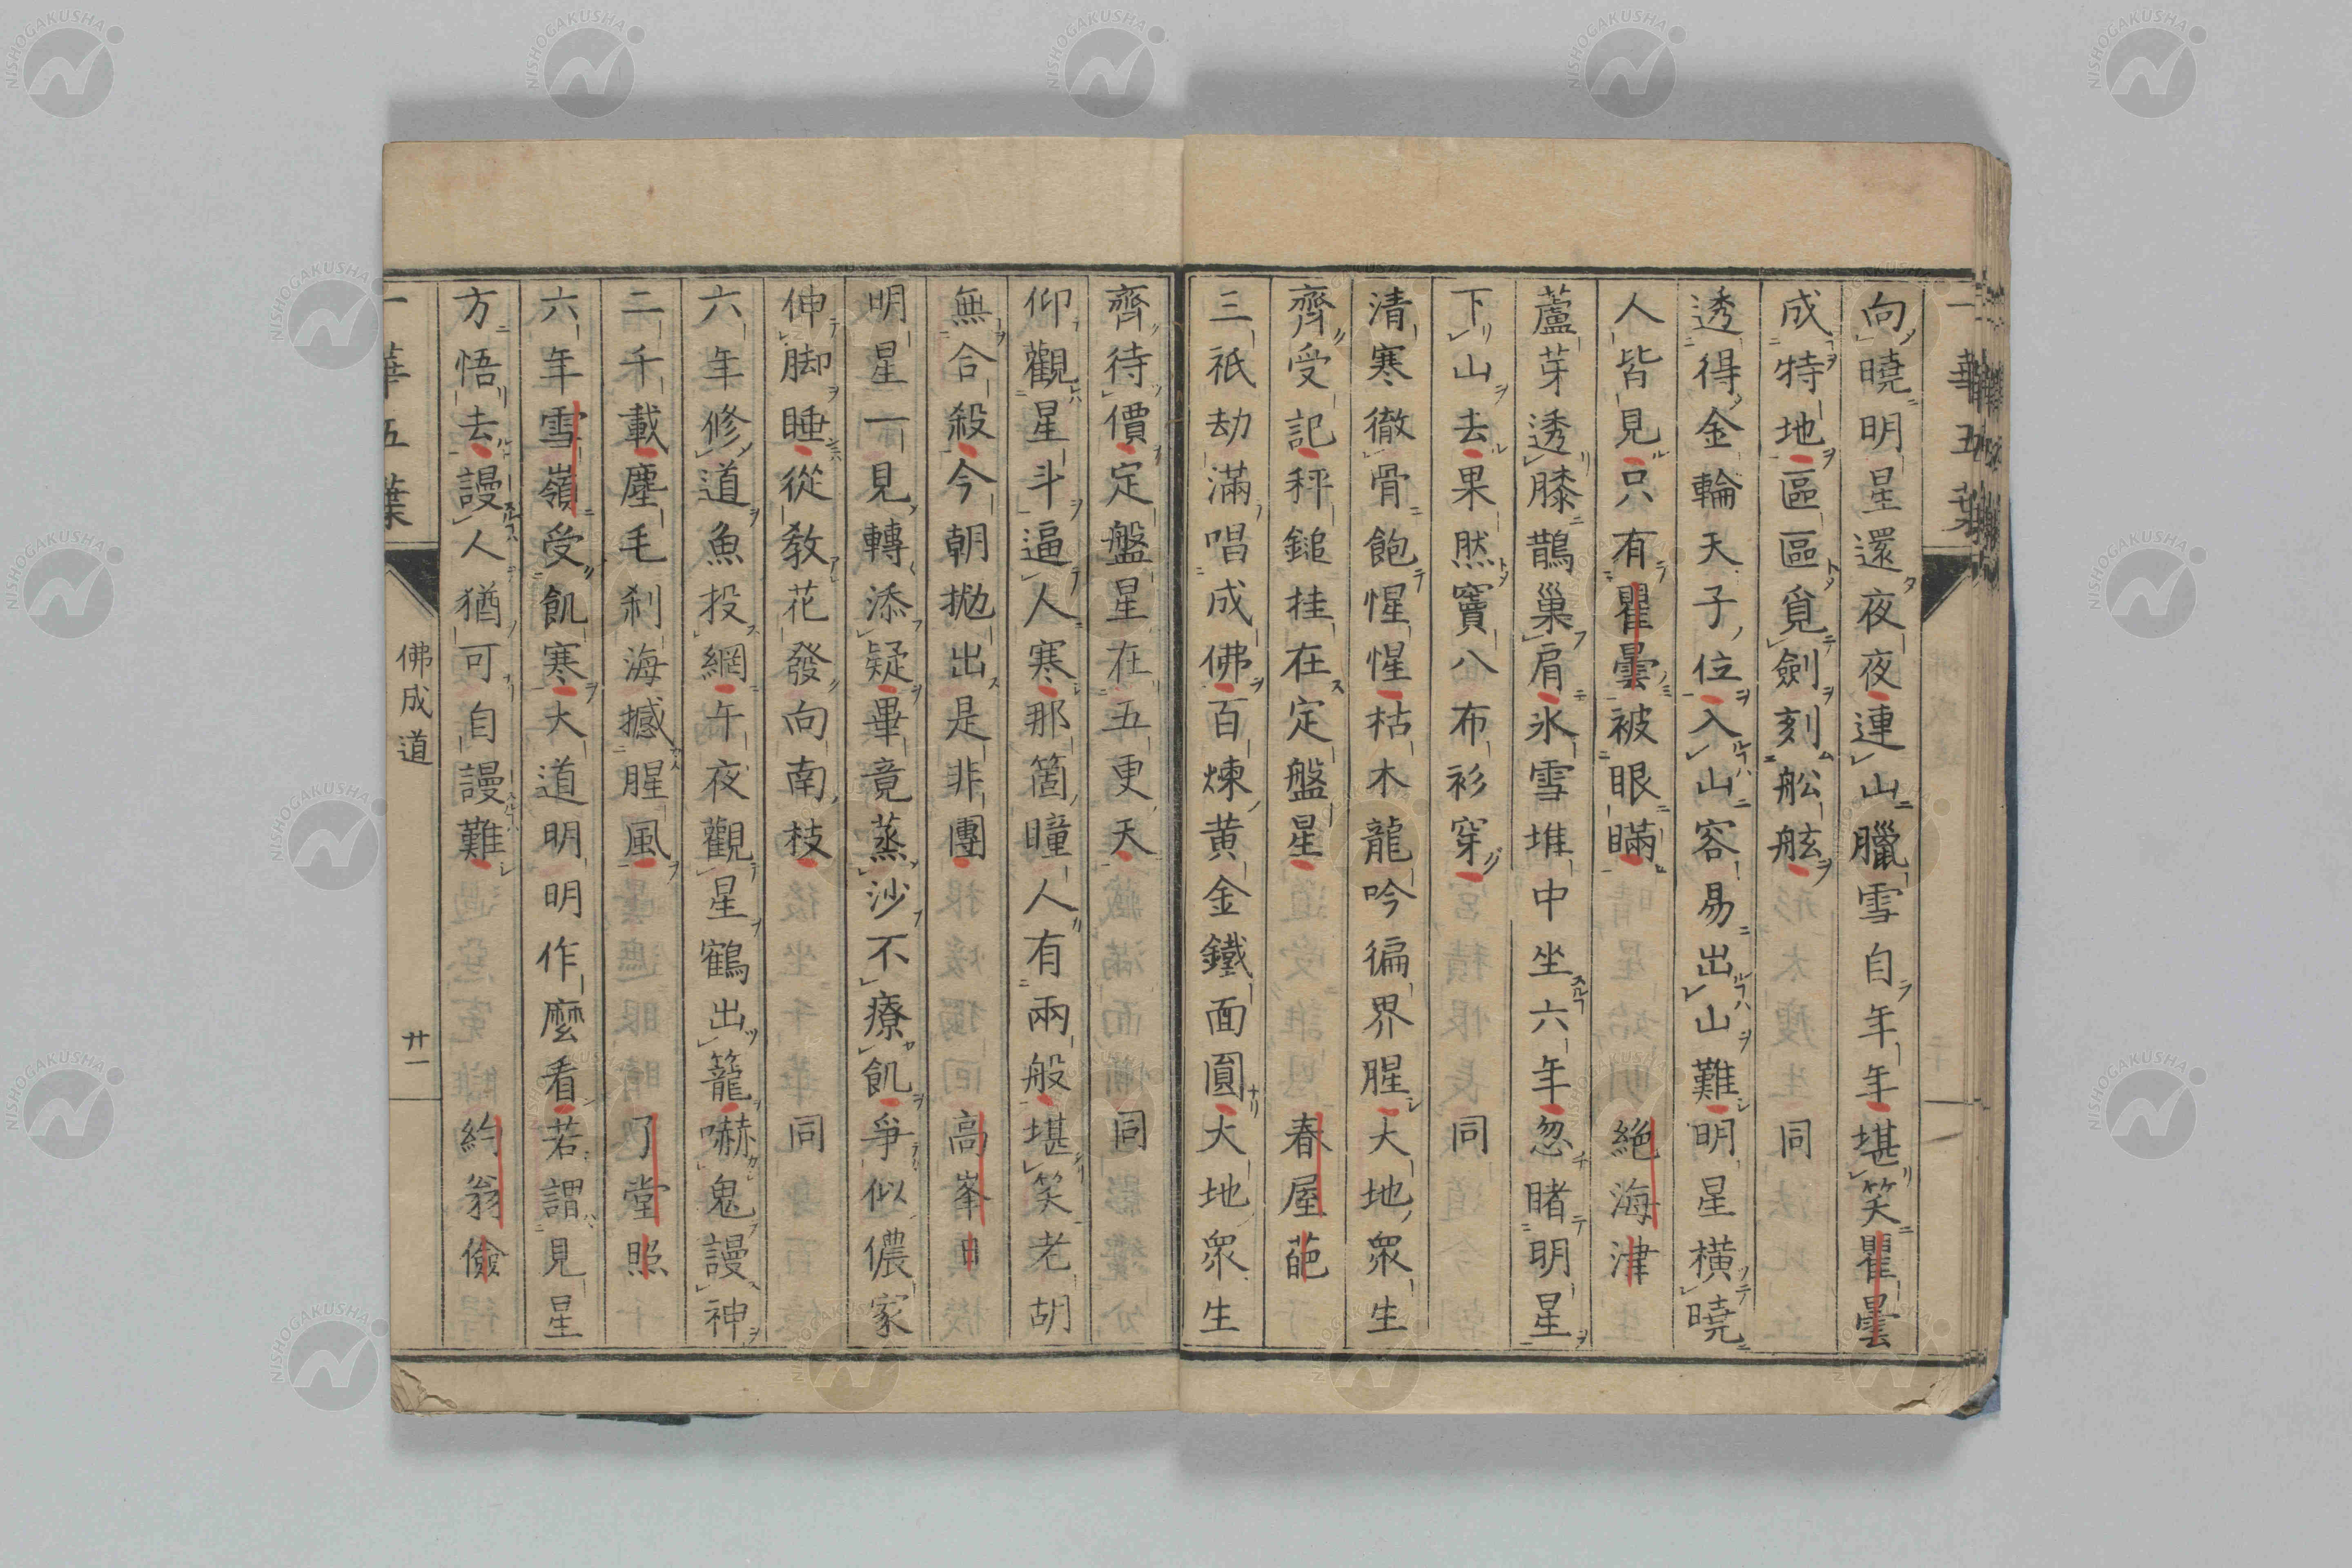 向曉明星還夜夜連山臘雪自年年堪笑瞿曇
成特地區區覓劍刻舩舷　同
透得金輪天子位入山容易出山難明星橫曉
人皆見只有瞿曇被眼瞞　絕海津
蘆芽透膝鵲巢肩氷雪堆中坐六年忽睹明星
下山去果然竇八布衫穿　同
清寒徹骨飽惺惺枯木龍吟徧界腥大地衆生
齊受記秤鎚挂在定盤星　春屋葩
三祇劫滿唱成佛百煉黃金鐵面圓大地衆生
齊待價定盤星在五更天　同
仰觀星斗逼人寒那箇瞳人有兩般堪笑老胡
無合殺今朝拋出是非團　高峯日
明星一見轉添疑畢竟蒸沙不療飢爭似儂家
伸脚睡從教花發向南枝　同
六年修道魚投網午夜觀星鶴出籠嚇鬼謾神
二千載塵毛刹海撼腥風　了堂照
六年雪嶺受飢寒大道明明作麼看若謂見星
方悟去謾人猶可自謾難　約翁儉
一華五葉
佛成道
廿一
NISHOGAKUSHA